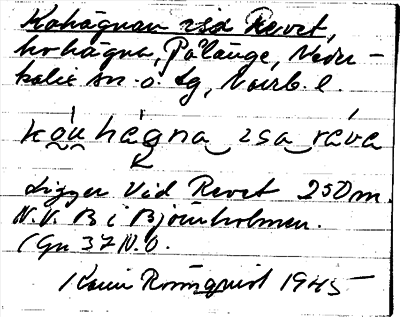 Kohägnan vid Revet,
kohägna, Pålänge, Neder-
kalix sn. o. tg, Norrb. l.
kǫ́ṷ hàgna zsa ráva
Ligger vid Revet 250 m.
N.V. B i Björnholmen.
(Gn 37 N.O.
Karin Rönnquist 1945